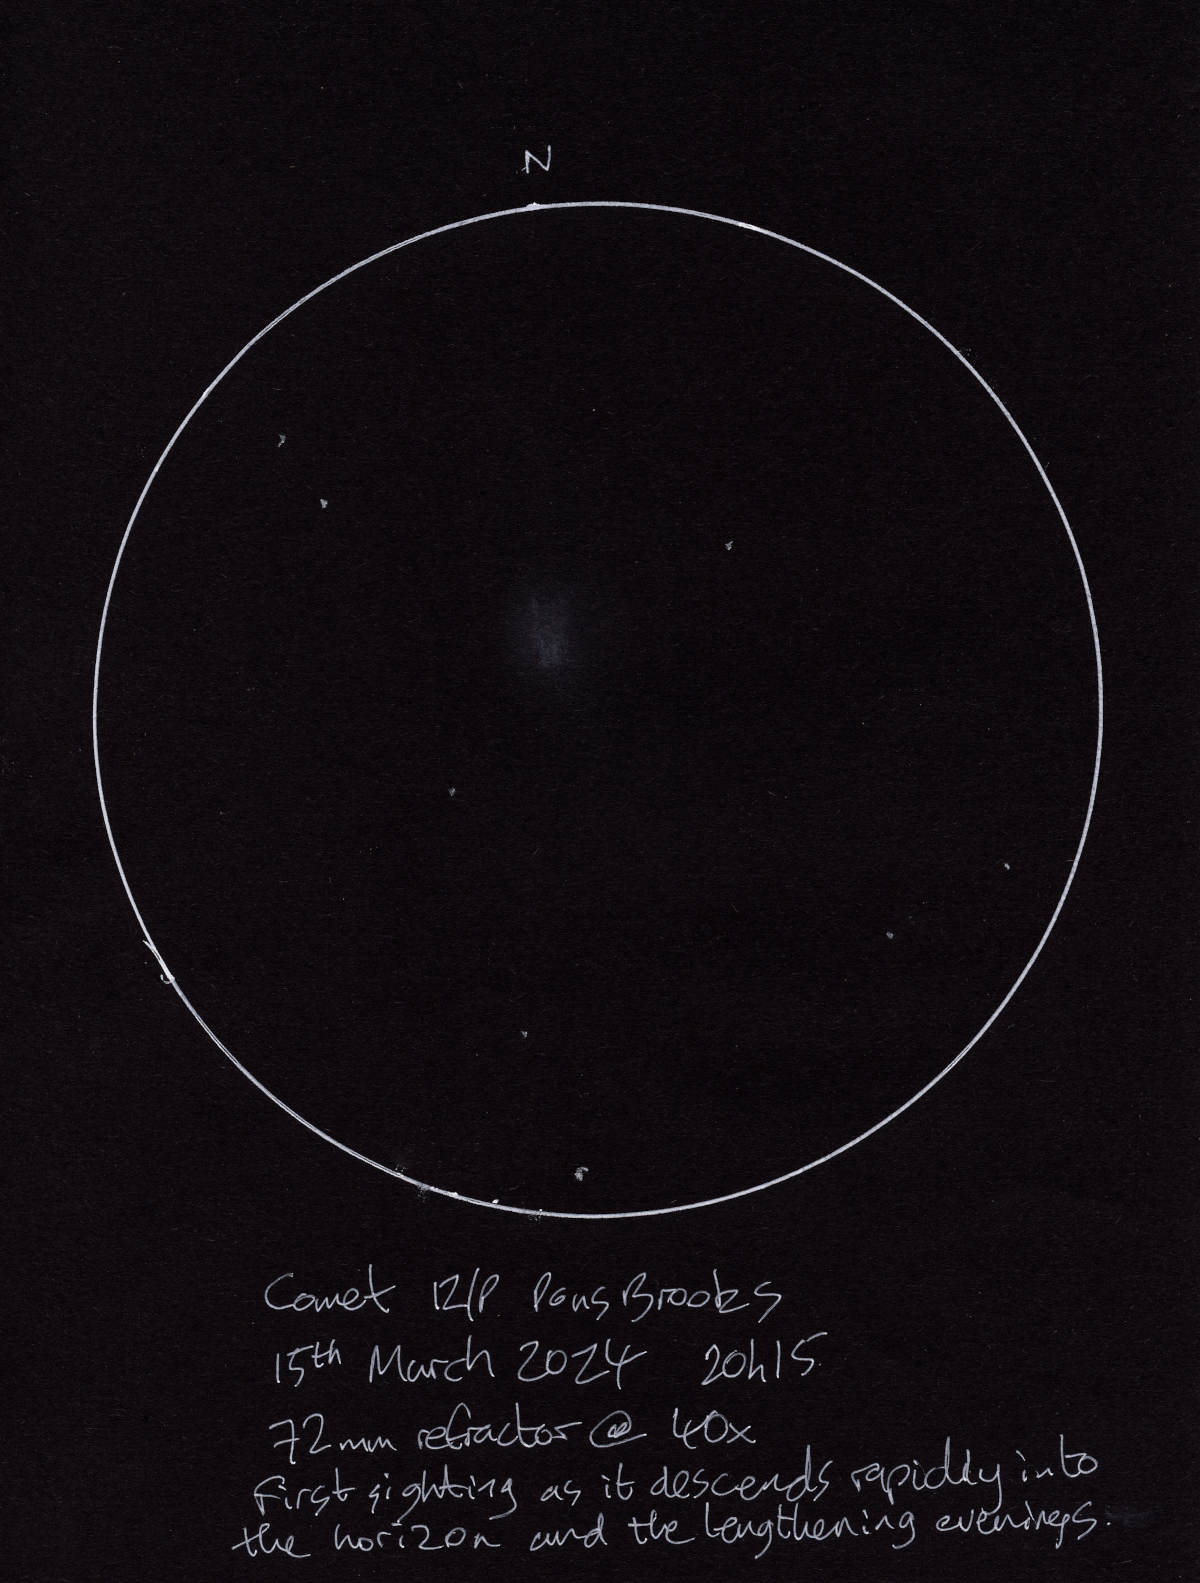 N
Comet 12/P Pons Brooks
15th March 2024 20h15
72mm refractor @ 40x
First sighting as it descends rapidly into
the horizon and the lengthening evenings.